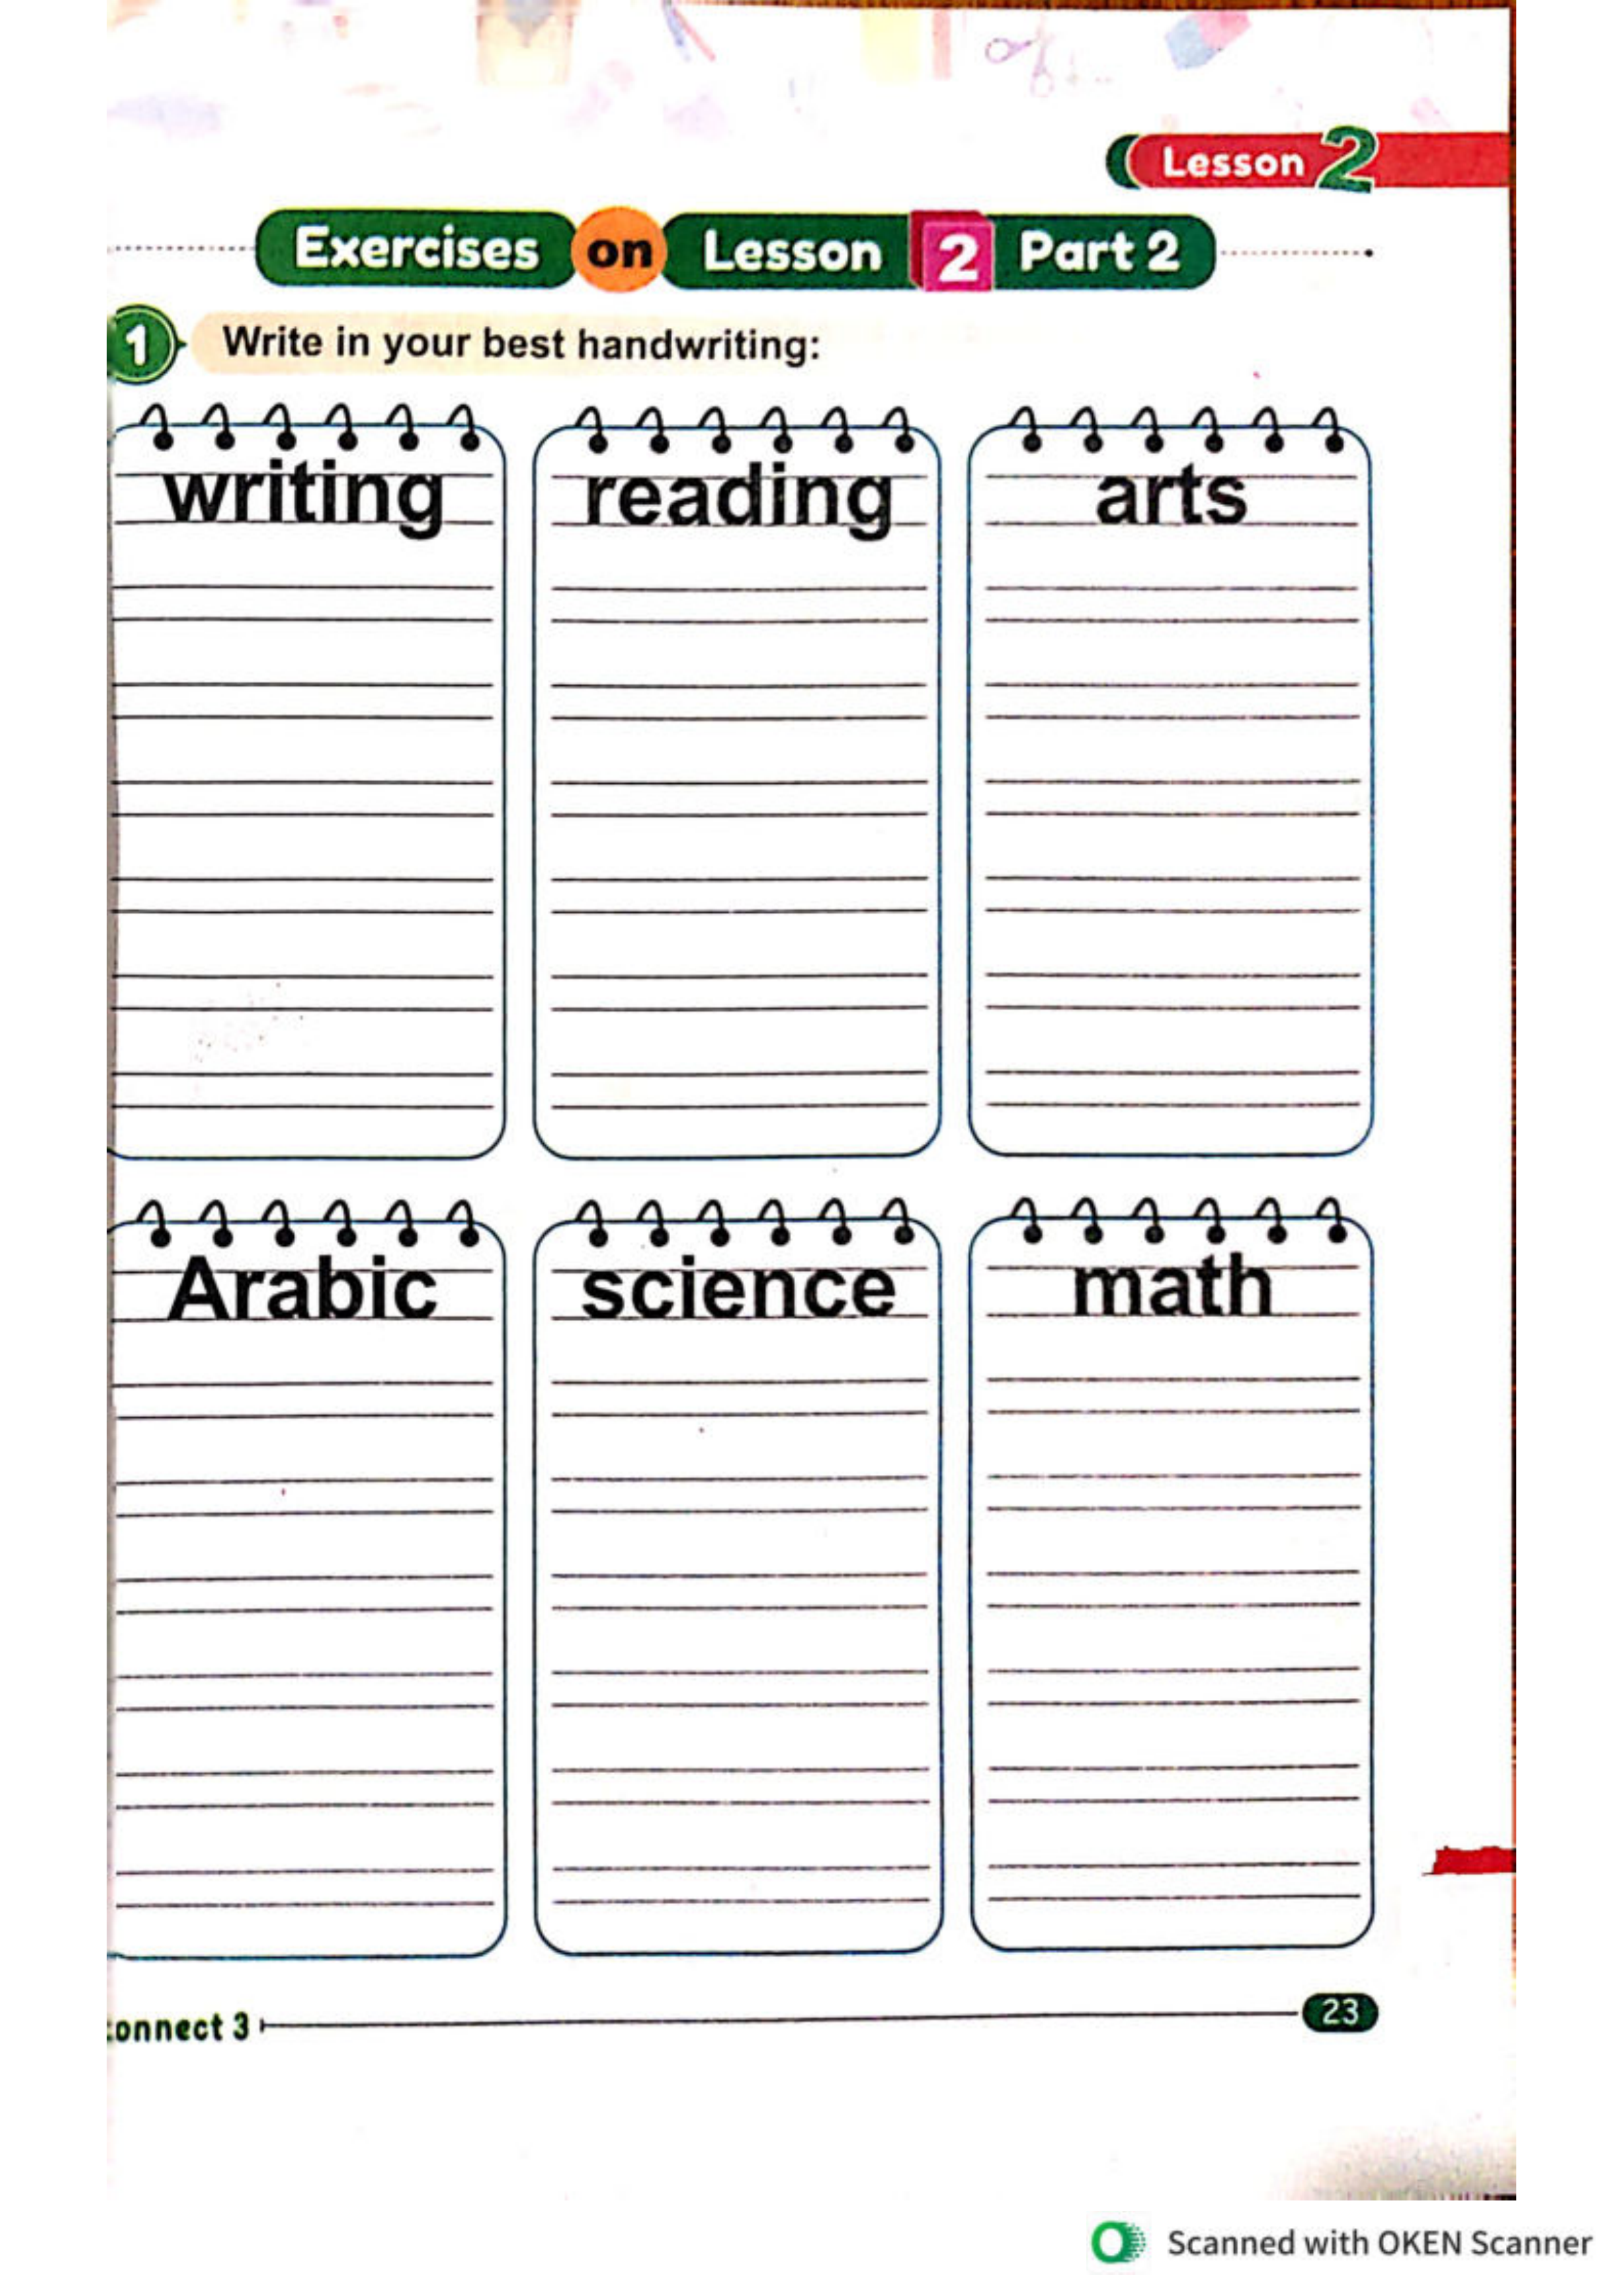 Lesson 2
Exercises on Lesson 2 Part 2
1 Write in your best handwriting:
writing reading arts
Arabic science math
onnect 3 23
Scanned with OKEN Scanner